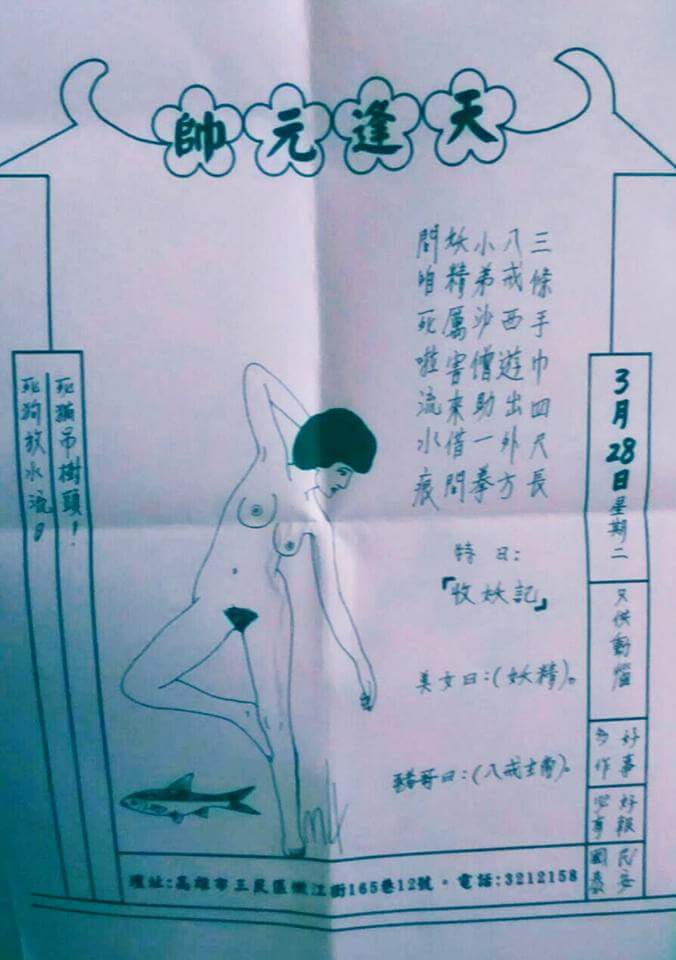 天逢元帥
三條手巾四尺長
八戒西遊出外方
小弟沙僧助一拳
妖精厲害來借問
問咱死啦流水痕
特曰：
「收妖記」
美女曰：（妖精）。
豬哥曰：（八戒主角）。
3月28日星期二
只供動腦
好事多作
好報必享
民安國泰
死貓吊樹頭！
死狗放水流！
壇址：高雄市三民區嫩江街165巷12號・電話：3212158